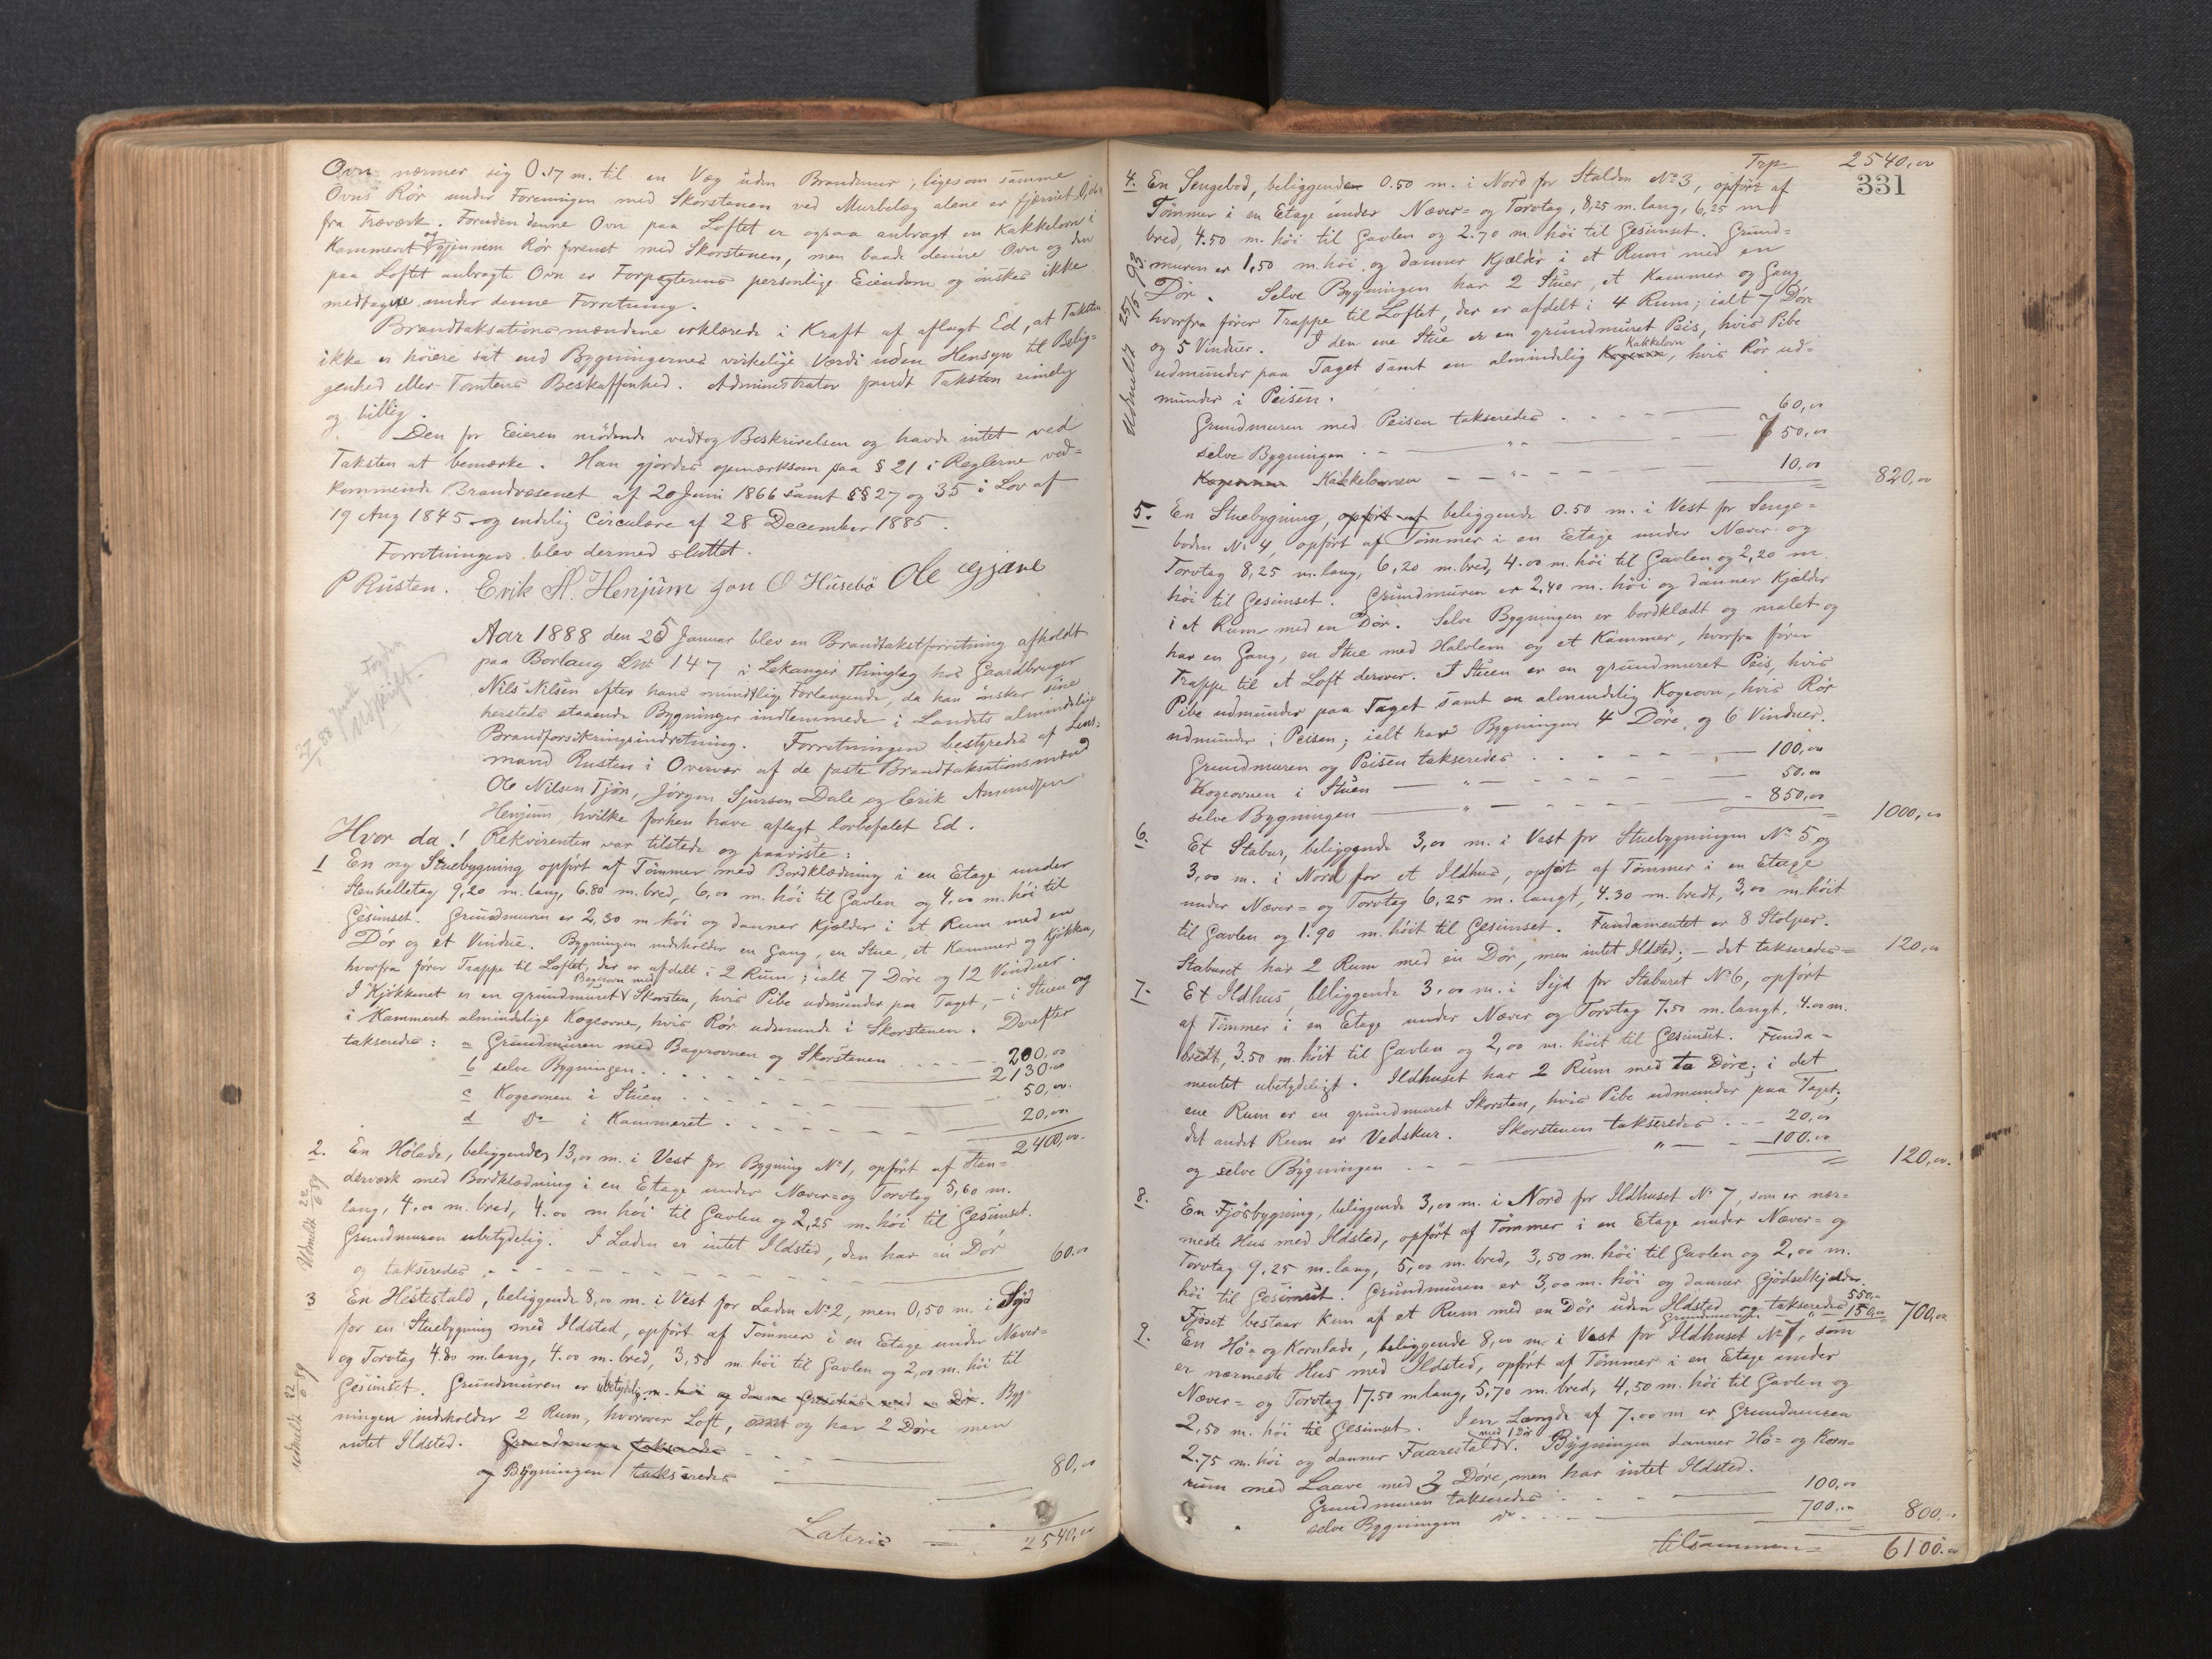 Ovn nærmer sig 0.17 m. til en Væg uden Brandmur, ligesom samme
Ovns Rör under Foreningen med Skorstenen ved Murbelæg alene er fjernet
fra Træværk. Foruden denne Ovn paa Loftet er ogsaa anbragt en Kakkelovn i
Kammeret og gjennem Rör forenet med Skorstenen, men baade denne Ovn og den
paa Loftet anbragte Ovn er Forpagterens personlige Eiendom og önskes ikke
medtagne under denne Forretning.
Brandtaksationsmændene erklærede i Kraft af aflagt Ed, at Taksten
ikke er höiere sat end Bygningernes virkelige Værdi uden Hensyn til Belig=
genhed eller Tomtens Beskaffenhed. Administrator fandt Taksten rimelig
og billig.
Den for Eieren mödende vedtog Beskrivelsen og havde intet ved
Taksten at bemærke. Han gjordes opmærksom paa § 21 i Reglerne ved=
kommende Brandvæsenet af 20 Juni 1866 samt §§ 27 og 35 i Lov af
19 Aug 1845 og endelig Circulære af 28 December 1885.
Forretningen blev dermed sluttet.
P Rusten. Erik A. Henjum Jon O Husebö Ole Gjære
27/1 88
Aar 1888 den 25 Januar blev en Brandtakstforretning afholdt
paa Borlaug Lnr 147 i Lekanger Thinglag hos Gaardbruger
Nils Nilsen efter hans mundtlige Forlangende, da han önsker sine
hersteds staaende Bygninger indlemmede i Landets almindelige
Brandforsikringsindretning. Forretningen bestyredes af Lens=
mand Rusten i Overvær af de faste Brandtaksationsmænd
Ole Nilsen Tjön, Jorgen Sjursen Dale og Erik Amundsen
Henjum, hvilke forhen have aflagt lovbefalet Ed.
Hvor da! Rekvirenten var tilstede og paaviste:
1 En ny Stuebygning opfört af Tömmer med Bordklædning i en Etage under
Stenhelletag 9,20 m. lang, 6.80 m. bred, 6,00 m. höi til Gavlen og 4,00 m. höi til
Gesimset. Grundmuren er 2,30 m höi og danner Kjælder i et Rum med en
Dör og et Vindue. Bygningen indeholder en Gang, en Stue, et Kammer og Kjökken,
hvorfra förer Trappe til Loftet, der er afdelt i 2 Rum; ialt 7 Döre og 12 Vinduer.
Bagerovn med
I Kjökkenet er en grundmuret Skorsten, hvis Pibe udmunder paa Taget, – i Stuen og
i Kammeret almindelige Kogeovne, hvis Rör udmunde i Skorstenen. Derefter
takseredes: a Grundmuren med Bagerovnen og Skorstenen 200,00
b selve Bygningen 2130,00
c Kogeovnen i Stuen 50,00
d Do i Kammeret 20,00
2400,00.
2. En Hölade, beliggende 13,00 m. i Vest for Bygning No 1, opfört af Sten=
derværk med Bordklædning i en Etage under Næver= og Torvtag 5,60 m.
lang, 4.00 m. bred, 4.00 m höi til Gavlen og 2,25 m. höi til Gesimset.
Grundmuren ubetydelig. I Laden er intet Ildsted, den har en Dör
og takseredes 60.00
Udmeldt 22/6 89
3 En Hestestald, beliggende 8,00 m. i Vest for Laden No 2, men 0,50 m. i Syd
for en Stuebygning med Ildsted, opfört af Tömmer i en Etage under Næver=
og Torvtag 4.80 m. lang, 4.00 m. bred, 3,50 m. höi til Gavlen og 2,00 m. höi til
Gesimset. Grundmuren er ubetydelig m. höi og danner med en Dör. Byg=
ningen indeholder 2 Rum, hvorover Loft, samt og har 2 Döre men
intet Ildsted. Grundmuren takseredes
og Bygningen takseredes 80,00
udmeldt 22/6 89
Lateris 2540,00
Trp 2540,00
331
4. En Sengebod, beliggende 0.50 m. i Nord for Stalden No 3, opfört af
Tömmer i en Etage under Næver= og Torvtag, 8,25 m. lang, 6,25 m
bred, 4.50 m. höi til Gavlen og 2.70 m. höi til Gesimset. Grund=
muren er 1,50 m. höi og danner Kjælder i et Rum med en
Dör. Selve Bygningen har 2 Stuer, et Kammer og Gang
hvorfra förer Trappe til Loftet, der er afdelt i 4 Rum; ialt 7 Döre
og 5 Vinduer. I den ene Stue er en grundmuret Peis, hvis Pibe
Kakkelovn
udmunder paa Taget samt en almindelig Kogeovn, hvis Rör ud=
munder i Peisen.
Udmeldt 25/5 93
Grundmuren med Peisen takseredes 60,00
selve Bygningen 750,00
Kogeovnen Kakkelovnen 10,00 820,00
5. En Stuebygning, opfört af beliggende 0.50 m. i Vest for Senge=
boden No 4, opfört af Tömmer i en Etage under Næver- og
Torvtag 8,25 m. lang, 6,20 m. bred, 4.00 m. höi til Gavlen og 2,20 m.
höi til Gesimset. Grundmuren er 2,40 m. höi og danner Kjælder
i et Rum med en Dör. Selve Bygningen er bordklædt og malet og
har en Gang, en Stue med Halvlem og et Kammer, hvorfra förer
Trappe til et Loft derover. I Stuen er en grundmuret Peis, hvis
Pibe udmunder paa Taget samt en almindelig Kogeovn, hvis Rör
udmunder i Peisen; ialt har Bygningen 4 Döre og 6 Vinduer.
Grundmuren og Peisen takseredes 100,00
Kogeovnen i Stuen 50.00
selve Bygningen 850,00 1000,00
6. Et Stabur, beliggende 3,00 m. i Vest for Stuebygningen No 5 og
3,00 m. i Nord for et Ildhus, opfört af Tömmer i en Etage
under Næver= og Torvtag 6,25 m. langt, 4.30 m. bredt, 3,00 m. höit
til Gavlen og 1.90 m. höit til Gesimset. Fundamentet er 8 Stolper.
Staburet har 2 Rum med en Dör, men intet Ildsted; – det takseredes = 120,00
7. Et Ildhus, beliggende 3,00 m. i Syd for Staburet No 6, opfört
af Tömmer i en Etage under Næver og Torvtag 7.50 m. langt, 4.00 m.
bredt, 3.50 m. höit til Gavlen og 2,00 m. höit til Gesimset. Funda=
mentet ubetydeligt. Ildhuset har 2 Rum med to Döre; i det
ene Rum er en grundmuret Skorsten, hvis Pibe udmunder paa Taget;
det andet Rum er Vedskur. Skorstenen takseredes 20,00
og selve Bygningen 100,00 120,00.
8. En Fjösbygning, beliggende 3,00 m. i Nord for Ildhuset No 7, som er nær=
meste Hus med Ildsted, opfört af Tömmer i en Etage under Næver= og
Torvtag 9,25 m. lang, 5,00 m. bred, 3,50 m. höi til Gavlen og 2,00 m.
höi til Gesimset. Grundmuren er 3,00 m. höi og danner Gjödselkjælder.
Fjöset bestaar kun af et Rum med en Dör uden Ildsted og takseredes 550,00
Grundmuren 150,00 700,00
9. En Hö= og Kornlade, beliggende 8,00 m. i Vest for Ildhuset No 7, som
er nærmeste Hus med Ildsted, opfört af Tömmer i en Etage under
Næver= og Torvtag 17.50 m lang, 5,70 m. bred, 4,50 m. höi til Gavlen og
2,50 m. höi til Gesimset. I en Længde af 7.00 m er Grundmuren
med 1 Dör
2.75 m. höi og danner Faarestald. Bygningen danner Hö= og Korn=
rum med Laave med 3 Döre, men har intet Ildsted.
Grundmuren takseredes 100,00
selve Bygningen Do 700,00 800,00
tilsammen = 6100.00